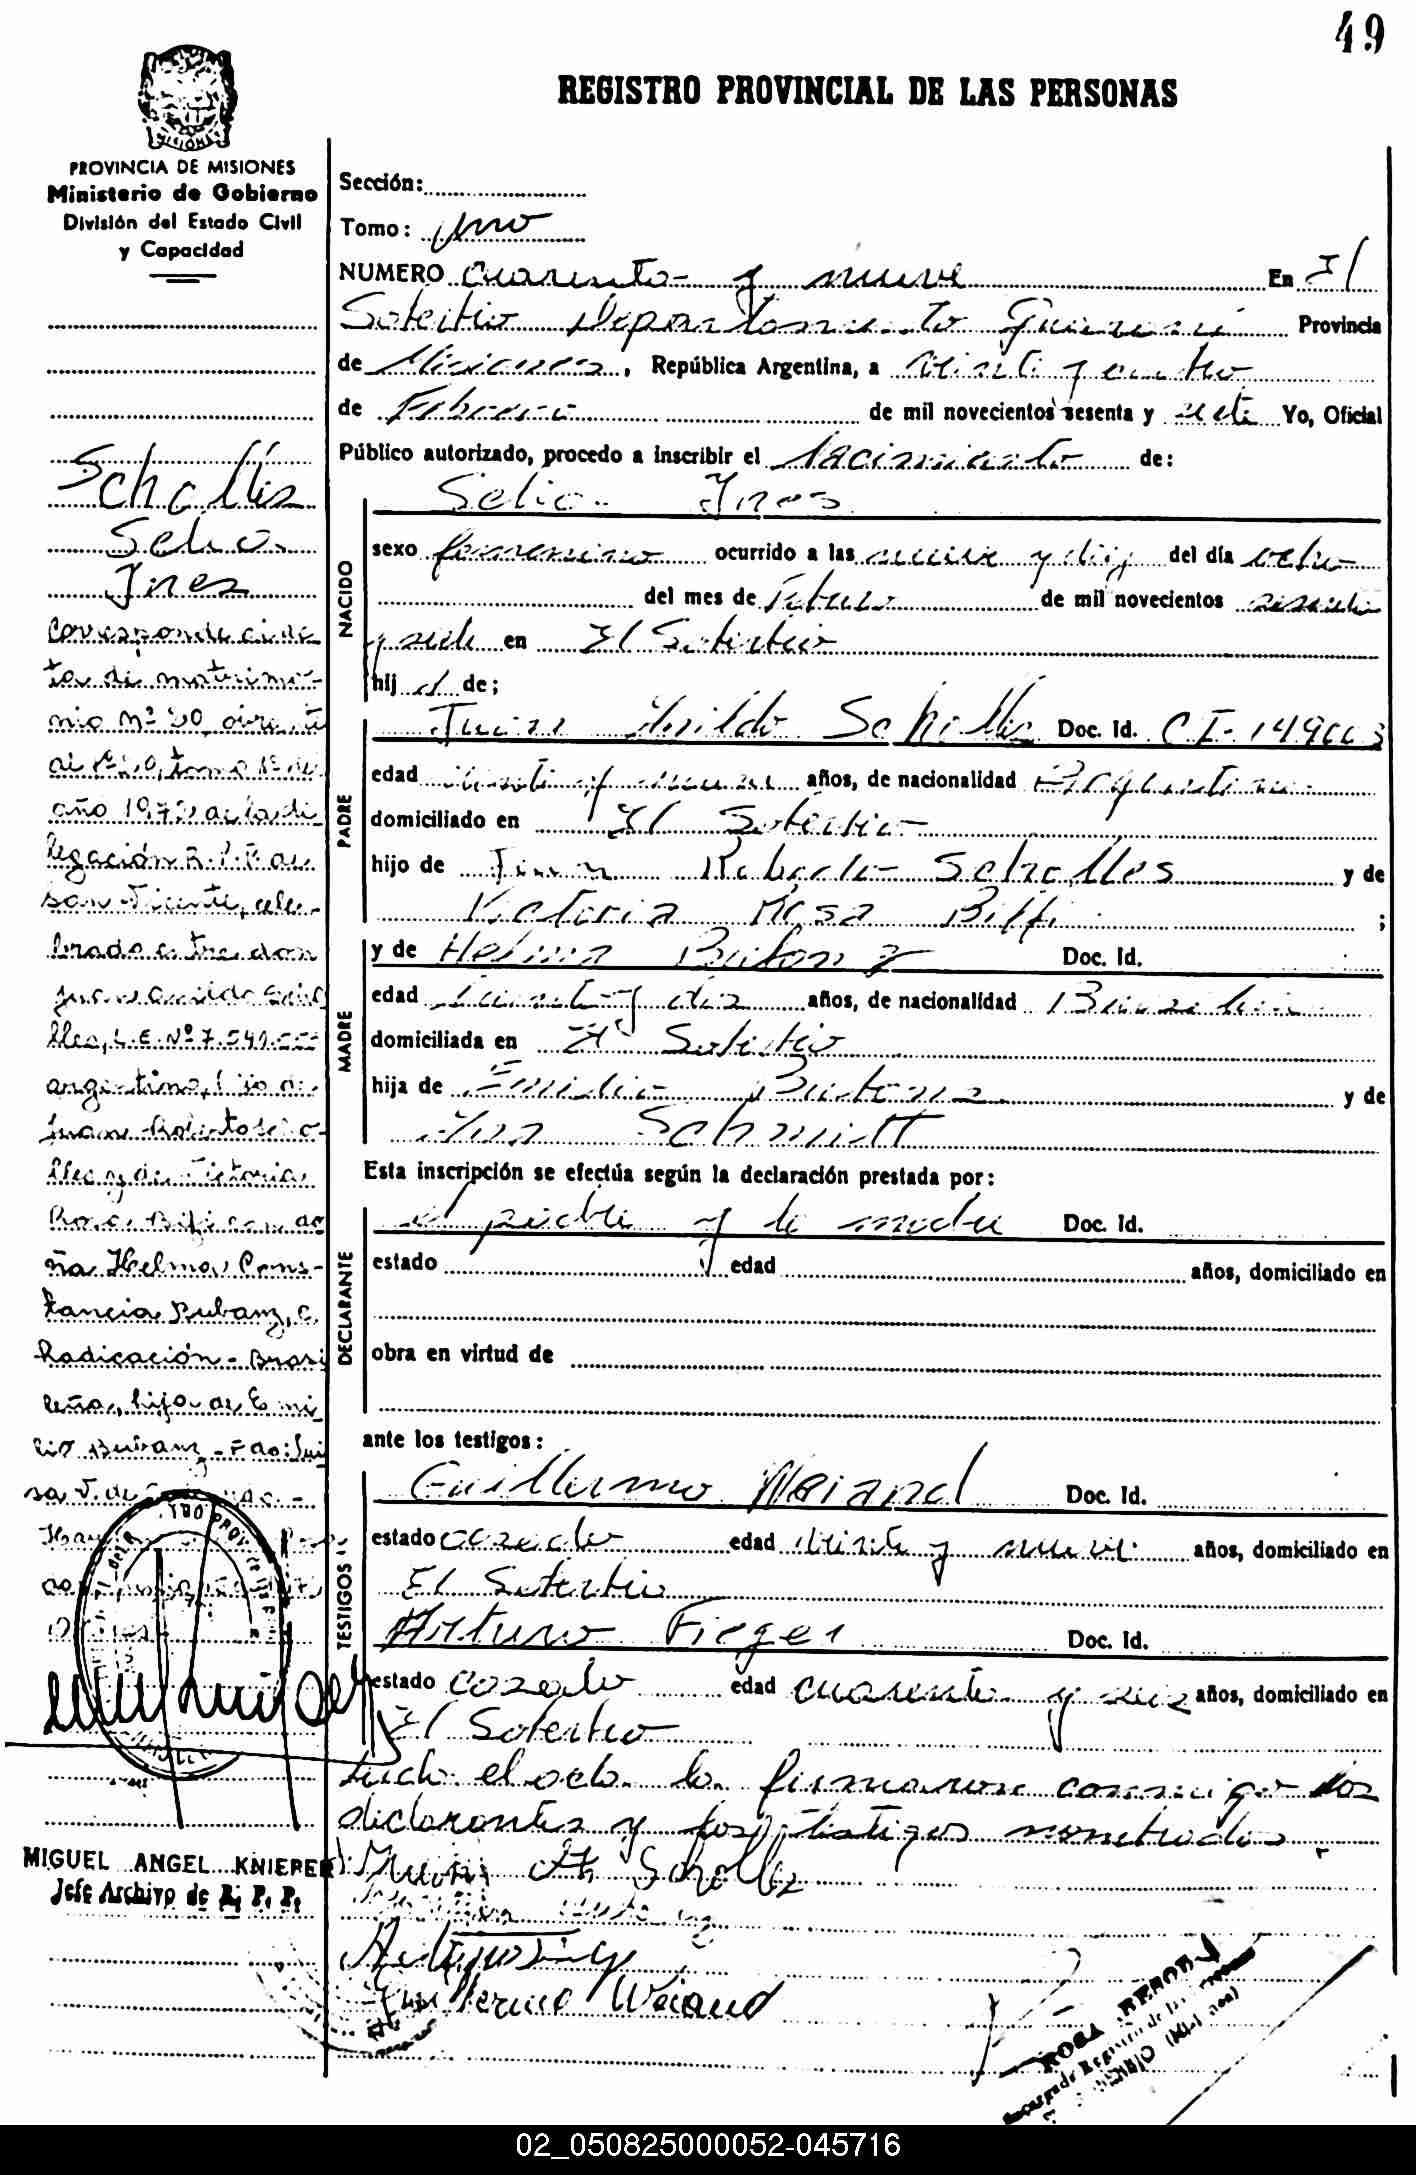 49
REGISTRO PROVINCIAL DE LAS PERSONAS
MISIONES
PROVINCIA DE MISIONES
Ministerio de Gobierno
División del Estado Civil
y Capacidad
Scholles
Selia
Ines
Corresponde al ac
ta de matrimo-
nio Nº 20,
año 1972 de la de
legación R.P.P. de
San Vicente, cele-
brado entre don
Juan Arnildo Scho
lles, L.E. Nº 7.541.
argentino, hijo de
Juan Roberto Scho-
lles y de Victoria
Rosa Biffi con do
ña Helma Cons-
tancia Bubanz, C.
Radicación - Brasi
leña, hija de Emi
lio Bubanz - Fdo: Lui
sa V. de
MIGUEL ANGEL KNIEPER
Jefe Archivo de R. P. P.
Sección:
Tomo: uno
NUMERO cuarenta y nueve En El
Soberbio Departamento Guaraní Provincia
de Misiones, República Argentina, a veinti y cuatro
de Febrero de mil novecientos sesenta y siete Yo, Oficial
Público autorizado, procedo a inscribir el Nacimiento de:
Selia Ines
NACIDO
sexo femenino ocurrido a las nueve y diez del día ocho
del mes de Febrero de mil novecientos sesenta
y siete en El Soberbio
hij a de;
PADRE
Juan Arnildo Scholles Doc. Id. C I-
edad veinti y nueve años, de nacionalidad Argentina
domiciliado en El Soberbio
hijo de Juan Roberto Scholles y de
Victoria Rosa Biffi ;
MADRE
y de Helma Bubanz Doc. Id.
edad y dos años, de nacionalidad Brasilera
domiciliada en El Soberbio
hija de Emilio Bubanz y de
Ana Schmitt
Esta inscripción se efectúa según la declaración prestada por:
DECLARANTE
el padre y la madre Doc. Id.
estado edad años, domiciliado en
obra en virtud de
ante los testigos:
TESTIGOS
Guillermo Weiand Doc. Id.
estado casado edad veinte y nueve años, domiciliado en
El Soberbio
Arturo Fieger Doc. Id.
estado casado edad cuarenta y seis años, domiciliado en
El Soberbio
Leida el acta la firmaron conmigo los
declarantes y los testigos nombrados.
Juan A. Scholles
Guillermo Weiand
ROSA
02_050825000052-045716